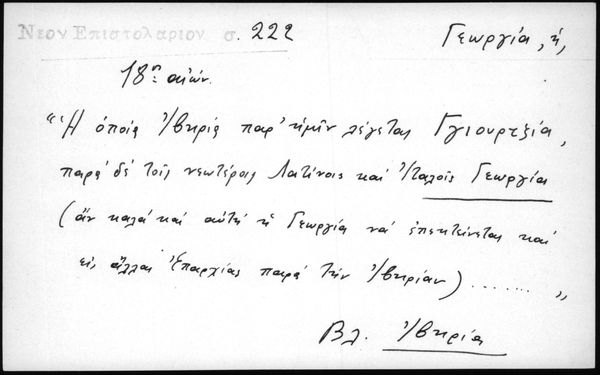 Νεον Επιστολαριον σ. 222
Γεωργία, ἡ,
18ος αἰών.
"Ἡ ὁποία Ἰβηρία παρ' ἡμῖν λέγεται Γγιουρτζία,
παρά δέ τοῖς νεωτέροις Λατίνοις καί Ἰταλοῖς Γεωργία
(ἄν καλά καί αὐτή ἡ Γεωργία νά ἐπεκτείνεται καί
εἰς ἄλλας Ἐπαρχίας παρά τήν Ἰβηρίαν) ........ "
Βλ. Ἰβηρία